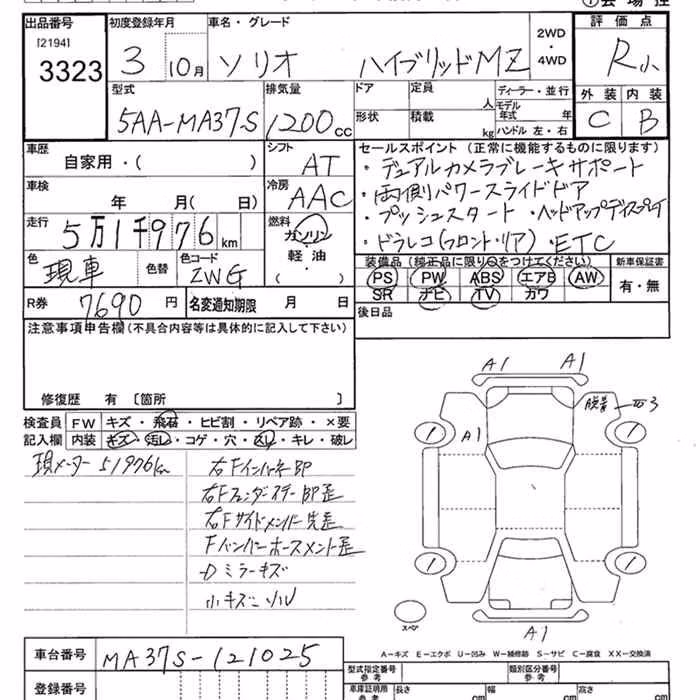 出品番号 初度登録年月 車名・グレード 2WD・4WD 評価点
[2194]
3323 3 10月 ソリオ ハイブリッドMZ R小
型式 排気量 ドア 定員 人 ディーラー・並行 外装 内装
5AA-MA37S 1200cc 形状 積載 kg モデル年式 年 ハンドル 左・右 C B
車歴 自家用・( ) シフト AT セールスポイント (正常に機能するものに限ります)
・デュアルカメラブレーキサポート
車検 年 月( 日) 冷房 AAC ・両側パワースライドドア
・プッシュスタート ・ヘッドアップディスプレイ
走行 5万1千976km 燃料 ガソリン・軽油・( ) ・ドラレコ(フロント・リア) ・ETC
色 現車 色替 色コード ZWG 装備品 (純正品に限り○をつけてください) 新車保証書
PS PW ABS エアB AW 有・無
SR ナビ TV カワ
R券 7690円 名変通知期限 月 日 後日品
注意事項申告欄(不具合内容等は具体的に記入して下さい)
修復歴 有 〔箇所 〕
検査員記入欄 FW キズ・飛石・ヒビ割・リペア跡・×要
内装 キズ・汚レ・コゲ・穴・スレ・キレ・破レ
現メーター 51976km 右Fインパネ部
右Fフェンダーステー部歪
右Fサイドメンバー先歪
Fバンパーホースメント歪
Dミラーキズ
小キズ
A1 A1
脱着
3
1 A1 1
1 1
スペア
A1
A-キズ E-エクボ U-凹み W-補修跡 S-サビ C-腐食 XX-交換済
車台番号 MA37S-121025 型式指定番号 参考 類別区分番号 参考
登録番号 車庫証明用 参考 長さ cm 幅 cm 高さ cm